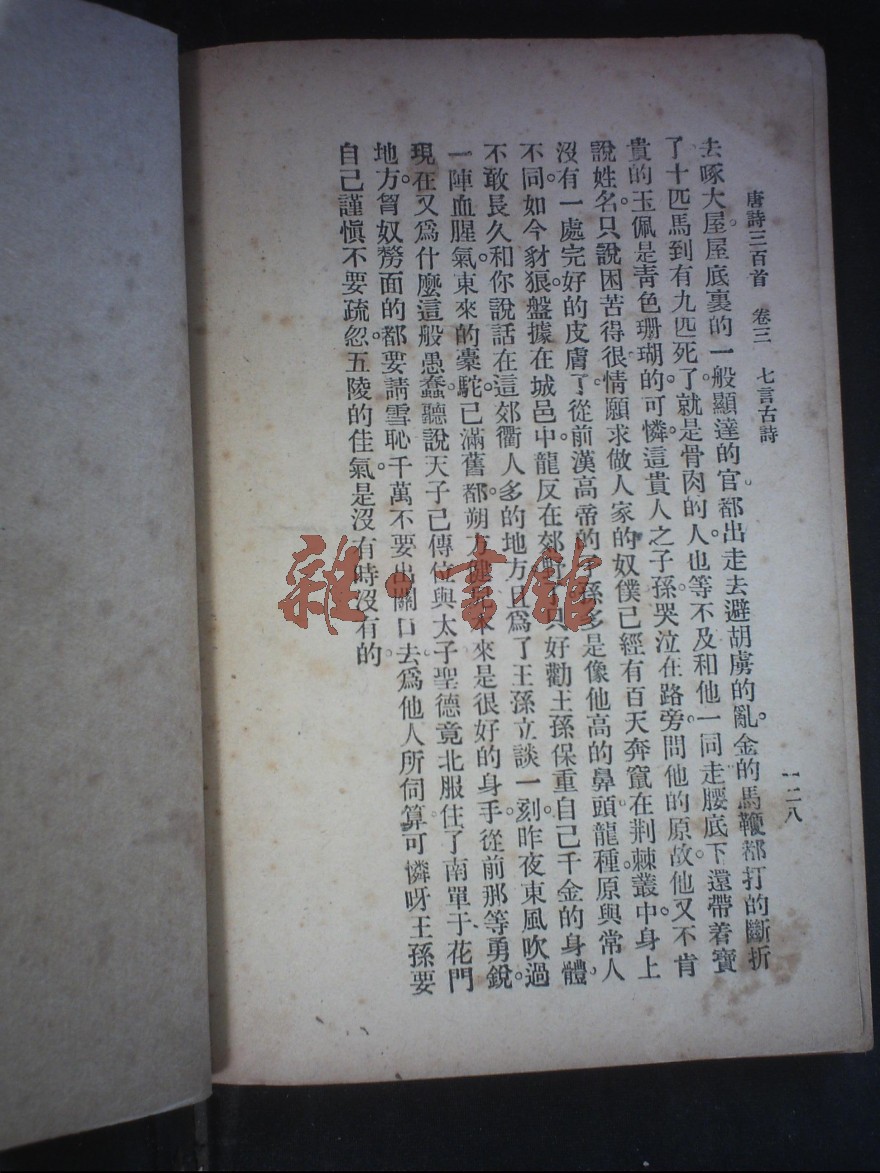 唐詩三百首　卷三　七言古詩
一二八
去啄大屋。屋底裏的一般顯達的官。都出走去避胡虜的亂。金的馬鞭都打的斷折
了十匹馬到有九匹死了。就是骨肉的人也等不及和他一同走腰底下還帶着寶
貴的玉佩是靑色珊瑚的。可憐這貴人之子孫哭泣在路旁。問他的原故。他又不肯
說姓名。只說困苦得很情願求做人家的奴僕已經有百天奔竄在荆棘叢中身上
沒有一處完好的皮膚了。從前漢高帝的子孫多是像他高的鼻頭。龍種原與常人
不同如今豺狼盤據在城邑中。龍反在郊野了。只好勸王孫保重自己千金的身體。
不敢長久和你說話在這郊衢人多的地方且爲了王孫立談一刻。昨夜東風吹過
一陣血腥氣。東來的橐駝已滿舊都。朔方健兒本來是很好的身手。從前那等勇銳。
現在又爲什麽這般愚蠢。聽說天子已傳位與太子聖德竟北服住了南單于花門
地方。曾奴剺面的都要請雪恥千萬不要出關口去爲他人所伺算可憐呀王孫要
自己謹愼不要疏忽。五陵的佳氣。是沒有時沒有的。
雜·書館